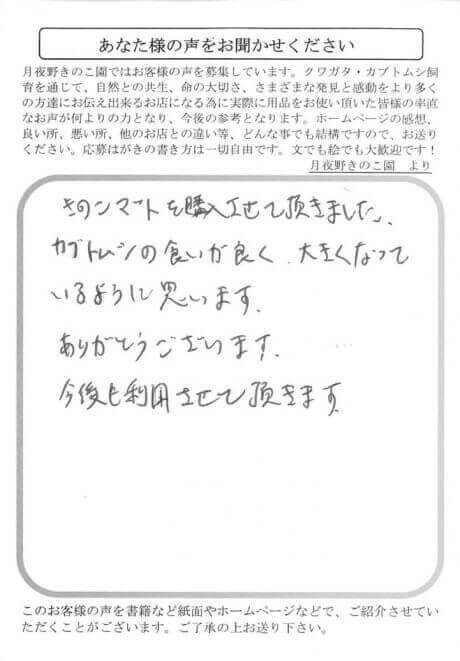 あなた様の声をお聞かせください
月夜野きのこ園ではお客様の声を募集しています。クワガタ・カブトムシ飼
育を通じて、自然との共生、命の大切さ、さまざまな発見と感動をより多く
の方達にお伝え出来るお店になる為に実際に用品をお使い頂いた皆様の率直
なお声が何よりの力となり、今後の参考となります。ホームページの感想、
良い所、悪い所、他のお店との違い等、どんな事でも結構ですので、お送り
ください。応募はがきの書き方は一切自由です。文でも絵でも大歓迎です！
月夜野きのこ園　より
きのこマットを購入させて頂きました、
カブトムシの食いが良く、大きくなって
いるように思います。
ありがとうございます。
今後も利用させて頂きます。
このお客様の声を書籍など紙面やホームページなどで、ご紹介させてい
ただくことがございます。ご了承の上お送り下さい。